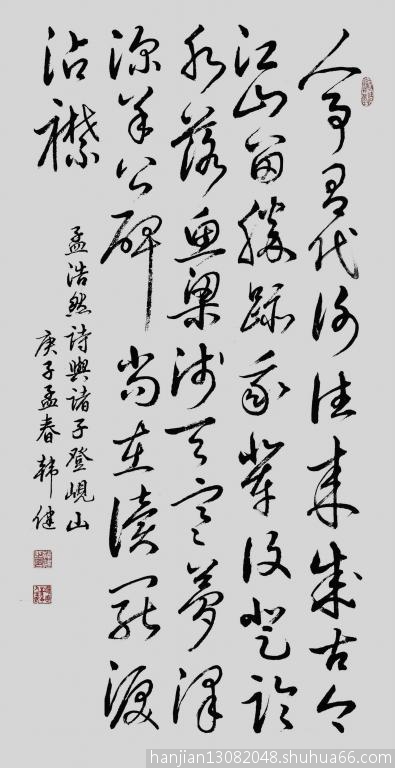 人事有代謝往來成古今
江山留勝跡我輩復登臨
水落魚梁淺天寒夢澤
深羊公碑尚在讀罷淚
沾襟
孟浩然詩與諸子登峴山
庚子孟春韓健
hanjian13082048.shuhua66.com